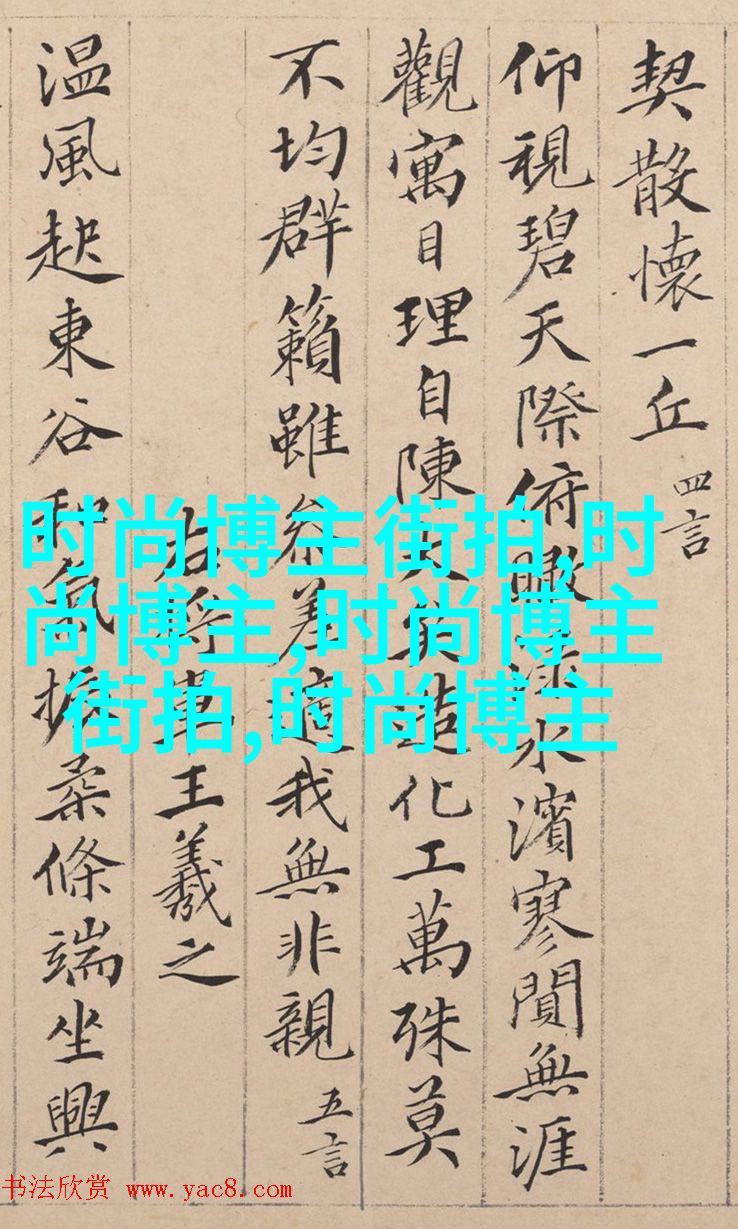 契散懷一丘 四言
仰視碧天際俯瞰淥水濱寥閴無涯
觀寓目理自陳大矣造化工萬殊莫
不均群籟雖參差適我無非親 五言
右將軍王羲之
温風起東谷和氣振柔條端坐興
时尚博主街拍,时
尚博主,时尚博主
街拍,时尚博主
书法欣赏 www.yac8.com